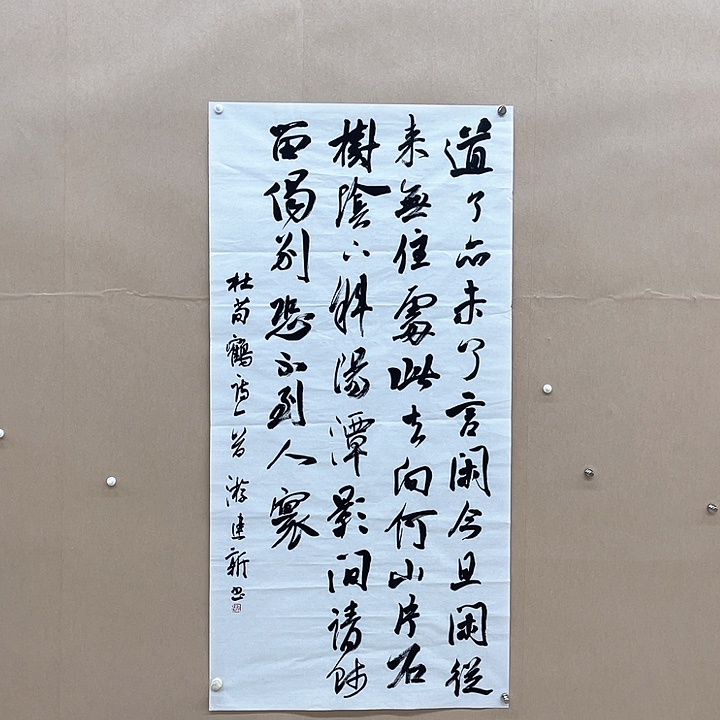 道了亦未了言閑今且閑從
来無住處此去向何山片石
樹陰下斜陽潭影間請師
留偈别恐不到人寰
杜荀鶴詩一首 游建新书